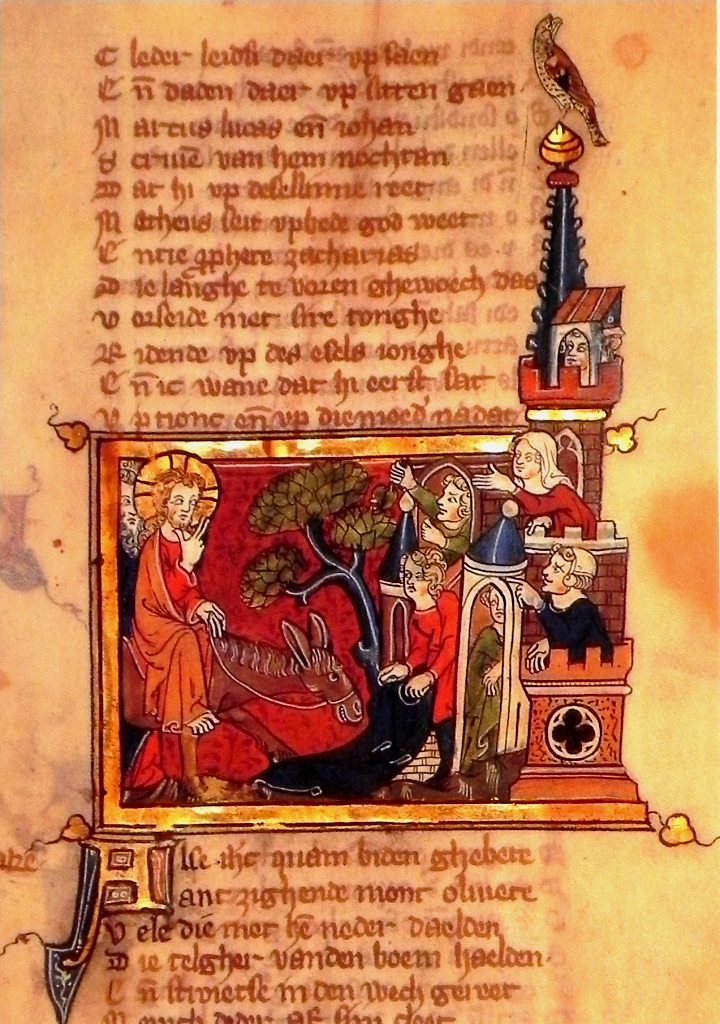 C leder leidsi daer vp saen
E n̄ daden daer vp sitten gaen
M arcus lucas en̄ iohan
S criuē van hem nochtan
D at hi vp deselinne reet
M atheus seit vp bede god weet
E ntie zacharias
D ie langhe te voren ghewoech das
V orseide met sire tonghe
R idende vp des esels ionghe
E n̄ ic wane dat hi eerst sat
V p tionc en̄ vp die moed' nadat
A lse ih̄c quam biden ghebete
ant zighende mont oliuete
V ele die met hē neder daelden
D ie telgher vanden boem haelden
E n̄ stroietse in den wech gereet